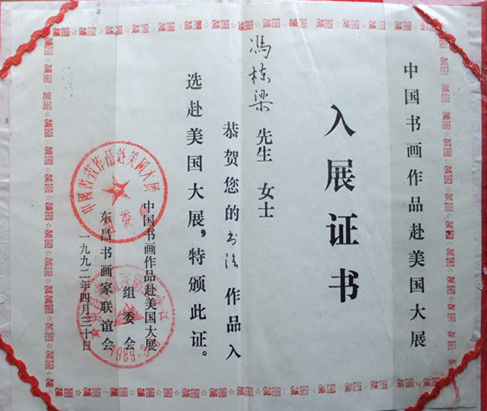 中国书画作品赴美国大展
入展证书
馮栋梁 先生 女士
恭贺您的书法作品入
选赴美国大展，特颁此证。
中国书画作品赴美国大展
组委会
东昌书画家联谊会
一九九二年四月三十日
中国书画作品赴美国大展